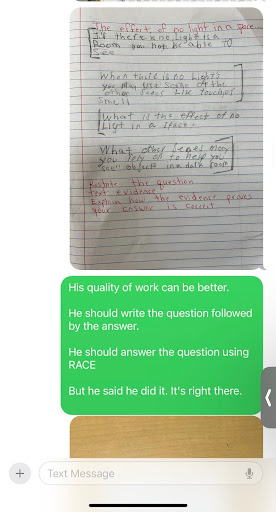 The effect of no light in a space...
If there is no Light is a
Room you not be able to
See
When there is no Lights
you may use Some of the
other Senses Like touches
Smell
What is the effect of no
Light in a space.
What other Senses
you rely on to help you
"see" objects in a dark room
Restate the question
text evidence
Explain how the evidence proves
your answer is correct
His quality of work can be better.
He should write the question followed
by the answer.
He should answer the question using
RACE
But he said he did it. It's right there.
Text Message